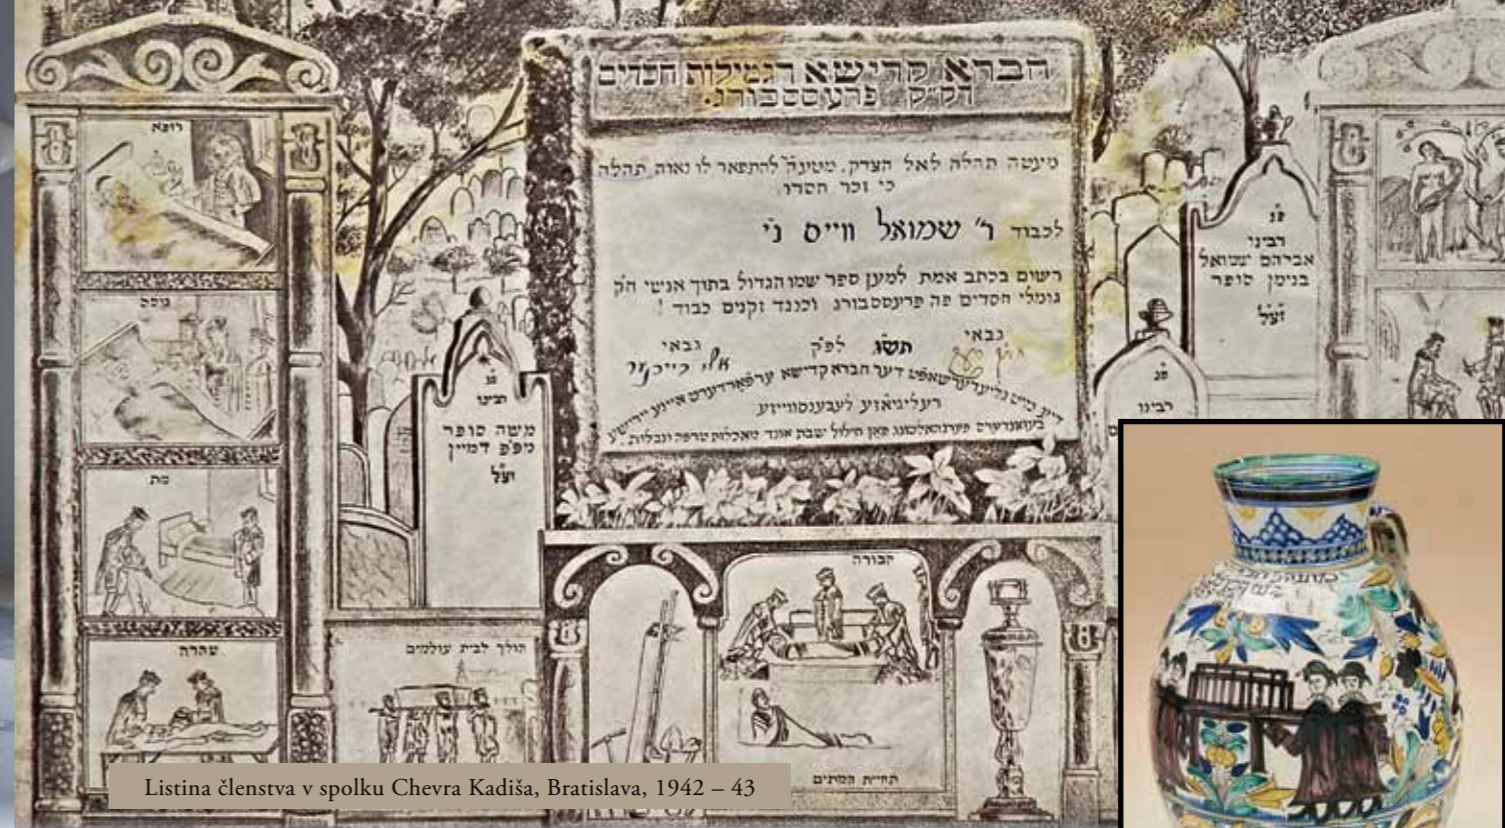 חברא קדישא דגמילות חסדים
דק״ק פרעססבורג.
מעטה תהלה לאל הצדק, להתפאר לו נאוה תהלה
כי זכר חסדו
לכבוד ר׳ שמואל ווייס ני׳
רשום בכתב אמת למען ספר שמו הגדול בתוך אנשי ח״ק
גומלי חסדים פה פרעססבורג וכנגד זקנים כבוד !
גבאי תש״ג לפ״ק גבאי
דער חברא קדישא ערפארדערט איינע
רעליגיאזע לעבענסווייזע
חילול שבת אונד טרפה ונבלות.
רופא
גוסס
מת
טהרה
הולך לבית עולמים
קבורה
תחיית המתים
פ״נ
רבינו
משה סופר
דמיין
זצ״ל
פ״נ
רבינו
אברהם שמואל
בנימן סופר
זצ״ל
פ״נ
רבינו
Listina členstva v spolku Chevra Kadiša, Bratislava, 1942 – 43